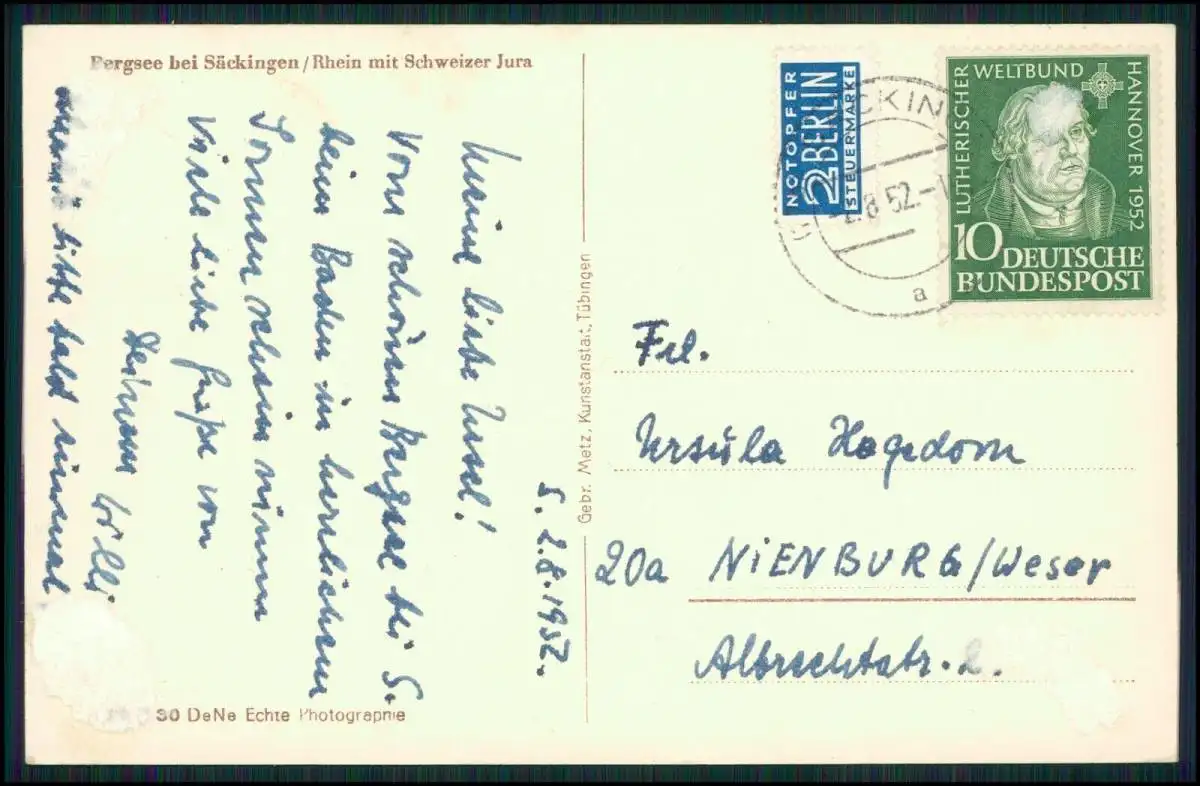 Bergsee bei Säckingen/Rhein mit Schweizer Jura
S. 2.8.1952.
Meine liebe Ursel!
Vom schönen Bergsee bei S.
beim Baden in herrlichem
Sonnenschein
Viele liebe Grüße von
Willi
bitte bald einmal
30 DeNe Echte Photographie
Gebr. Metz, Kunstanstalt, Tübingen
NOTOPFER
2 BERLIN
STEUERMARKE
8.52.-1
a
LUTHERISCHER WELTBUND HANNOVER 1952
10 DEUTSCHE
BUNDESPOST
Frl.
Ursula Hagedorn
20a NIENBURG/Weser
Albrechtstr. 2.